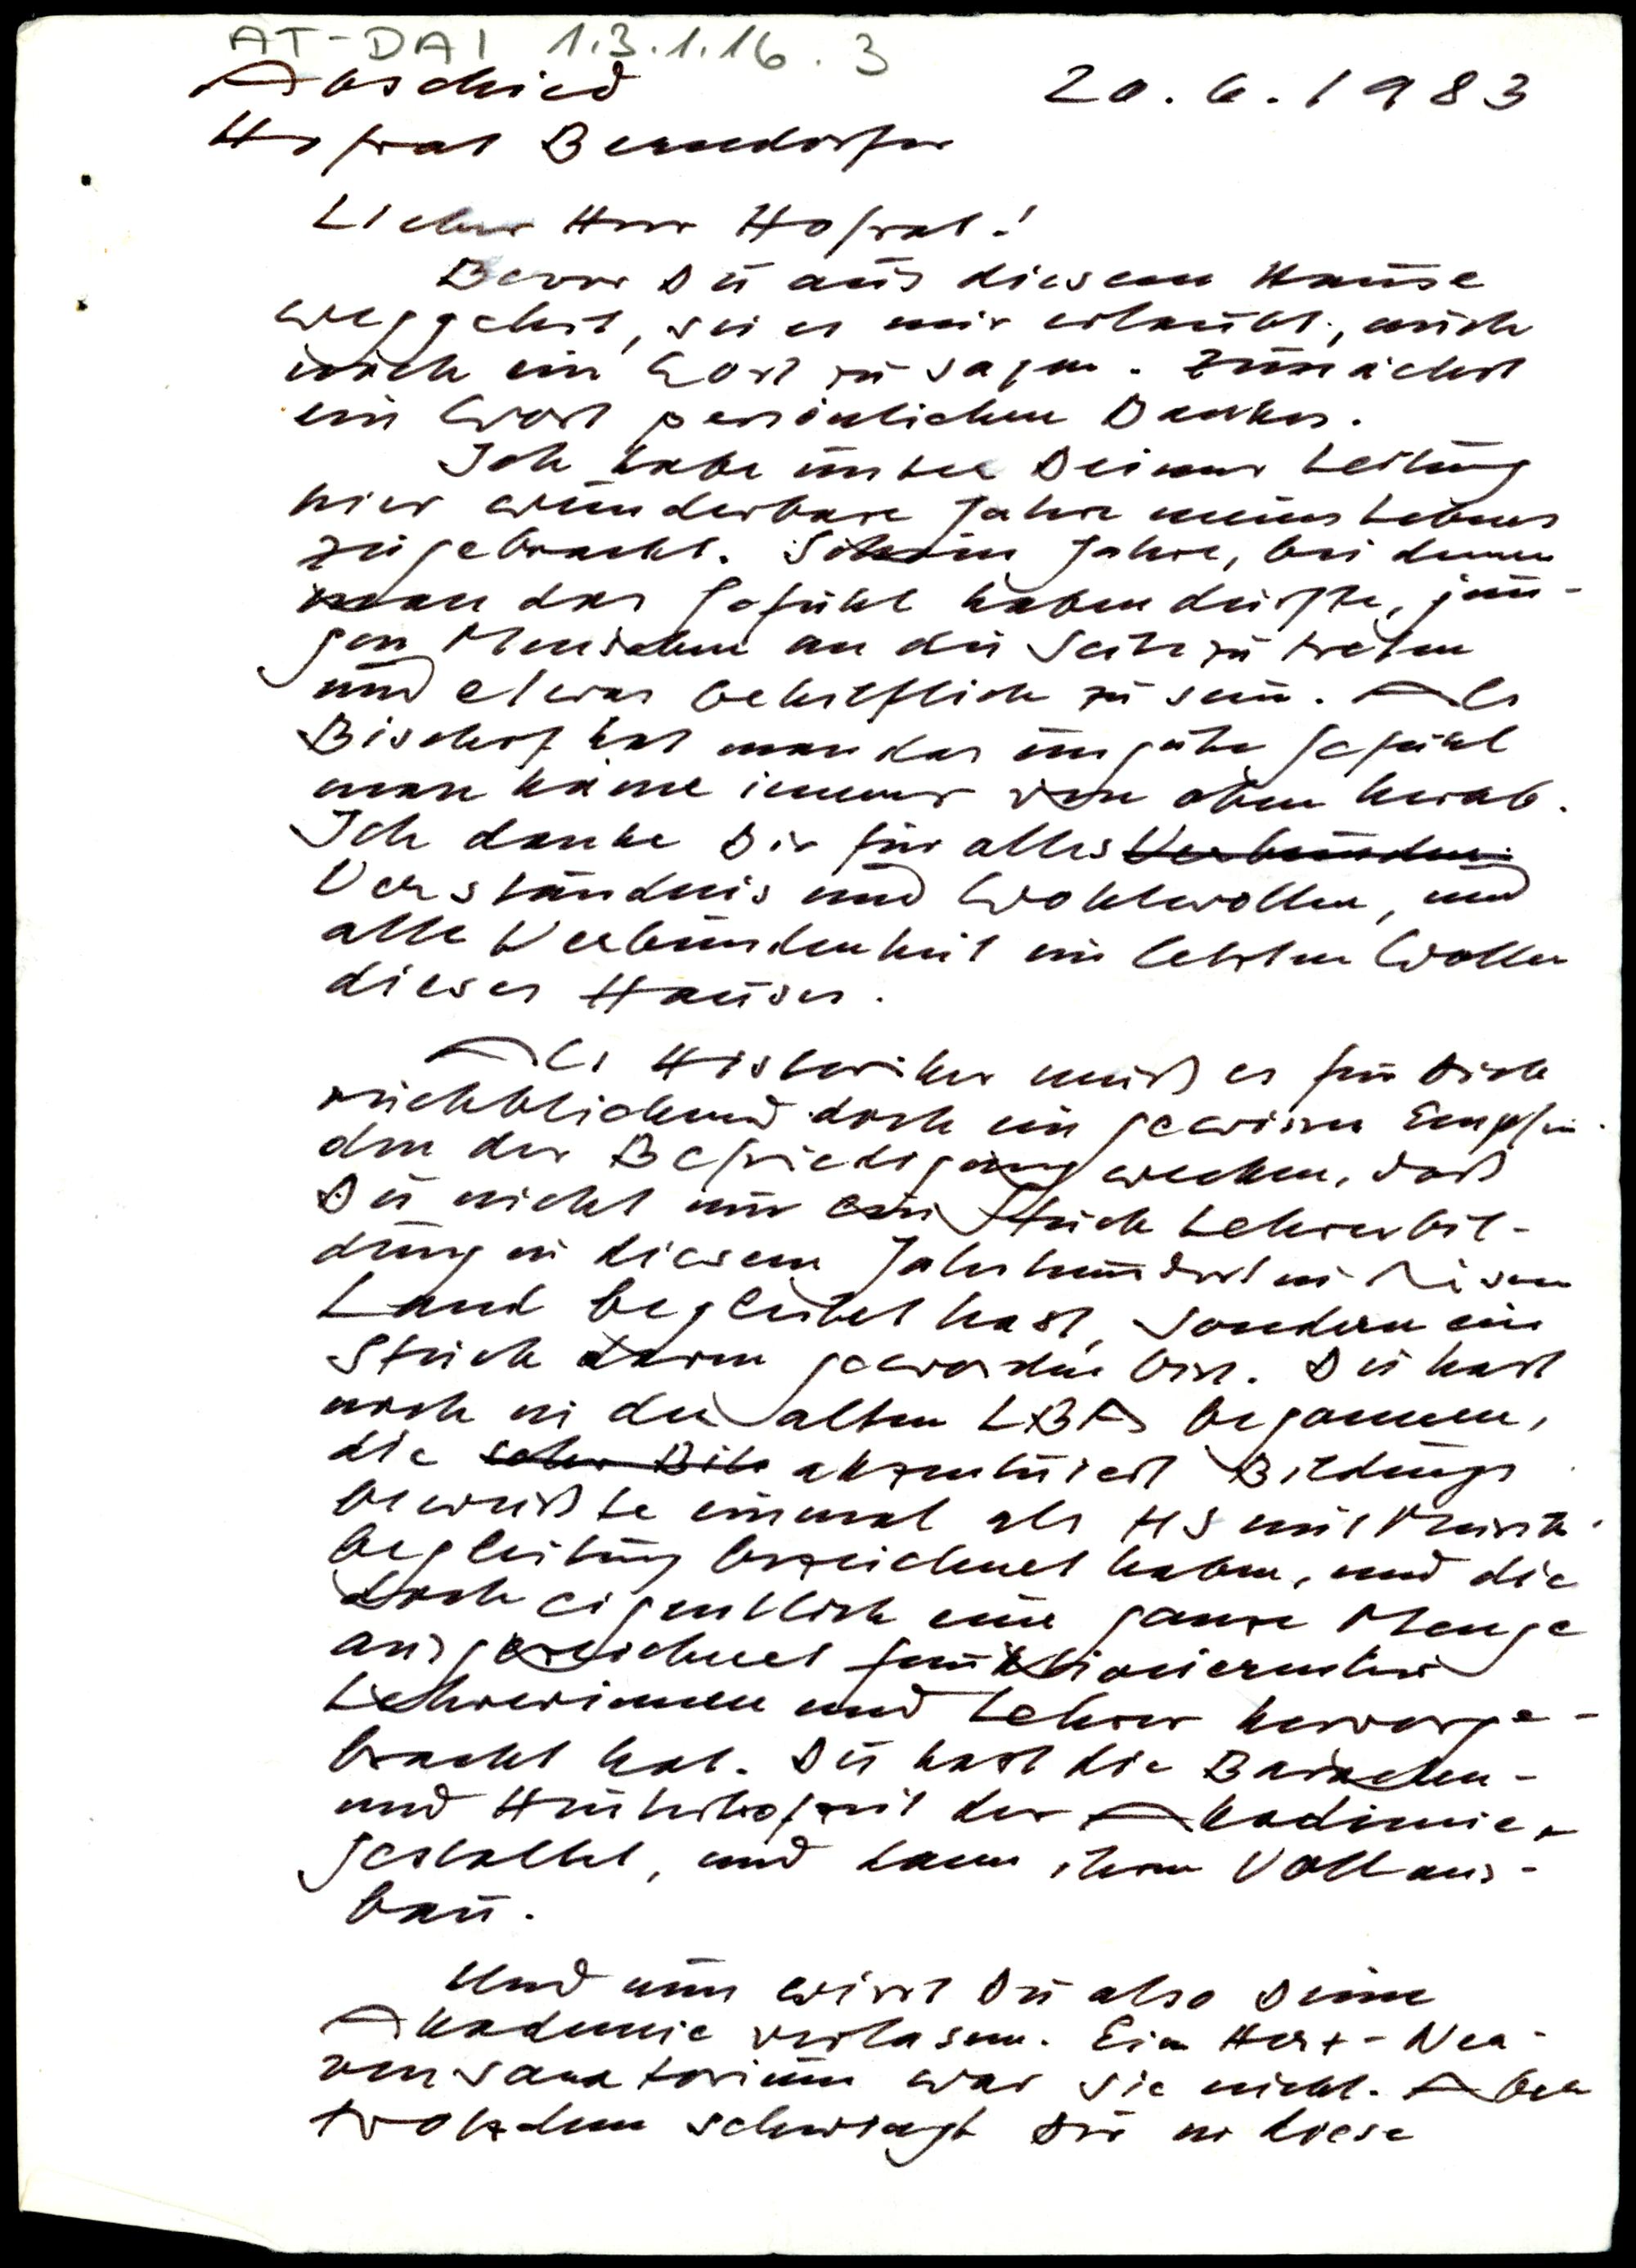 AT-DAI 1.3.1.16.3
Abschied 20.6.1983
Hofrat Berndorfer
Lieber Herr Hofrat!
Bevor Du aus diesem Hause
weggehst, sei es mir erlaubt, auch
noch ein Wort zu sagen. Zunächst
ein Wort persönlichen Dankes.
Ich habe unter Deiner Leitung
hier wunderbare Jahre meines Lebens
zugebracht. Schöne Jahre, bei denen
man das Gefühl haben durfte, jun-
gen Menschen an die Seite zu treten
und etwas behilflich zu sein. Als
Bischof hat man das ungute Gefühl
man käme immer von oben herab.
Ich danke Dir für alles Verbunden
Verständnis und Wohlwollen, und
alle Verbundenheit im letzten Wollen
dieses Hauses.
Als Historiker muß es für Dich
rückblickend doch ein gewisses Empfin-
den der Befriedigung wecken, daß
Du nicht nur ein Stück Lehrerbil-
dung in diesem Jahrhundert in diesem
Land begleitet hast, sondern ein
Stück davon geworden bist. Du hast
noch in der alten LBA begonnen,
die akzentuiert Bildungs-
bewußte einmal als HS mit Musik-
begleitung bezeichnet haben, und die
doch eigentlich eine ganze Menge
ausgezeichnet funktionierender
Lehrerinnen und Lehrer hervorge-
bracht hat. Du hast die Baracken-
und Hinterhofzeit der Akademie
gestaltet, und dann ihren Vollaus-
bau.
Und nun wirst Du also Deine
Akademie verlassen. Ein Herz-Ner-
vensanatorium war sie nicht. Aber
trotzdem schwingt Du in diese